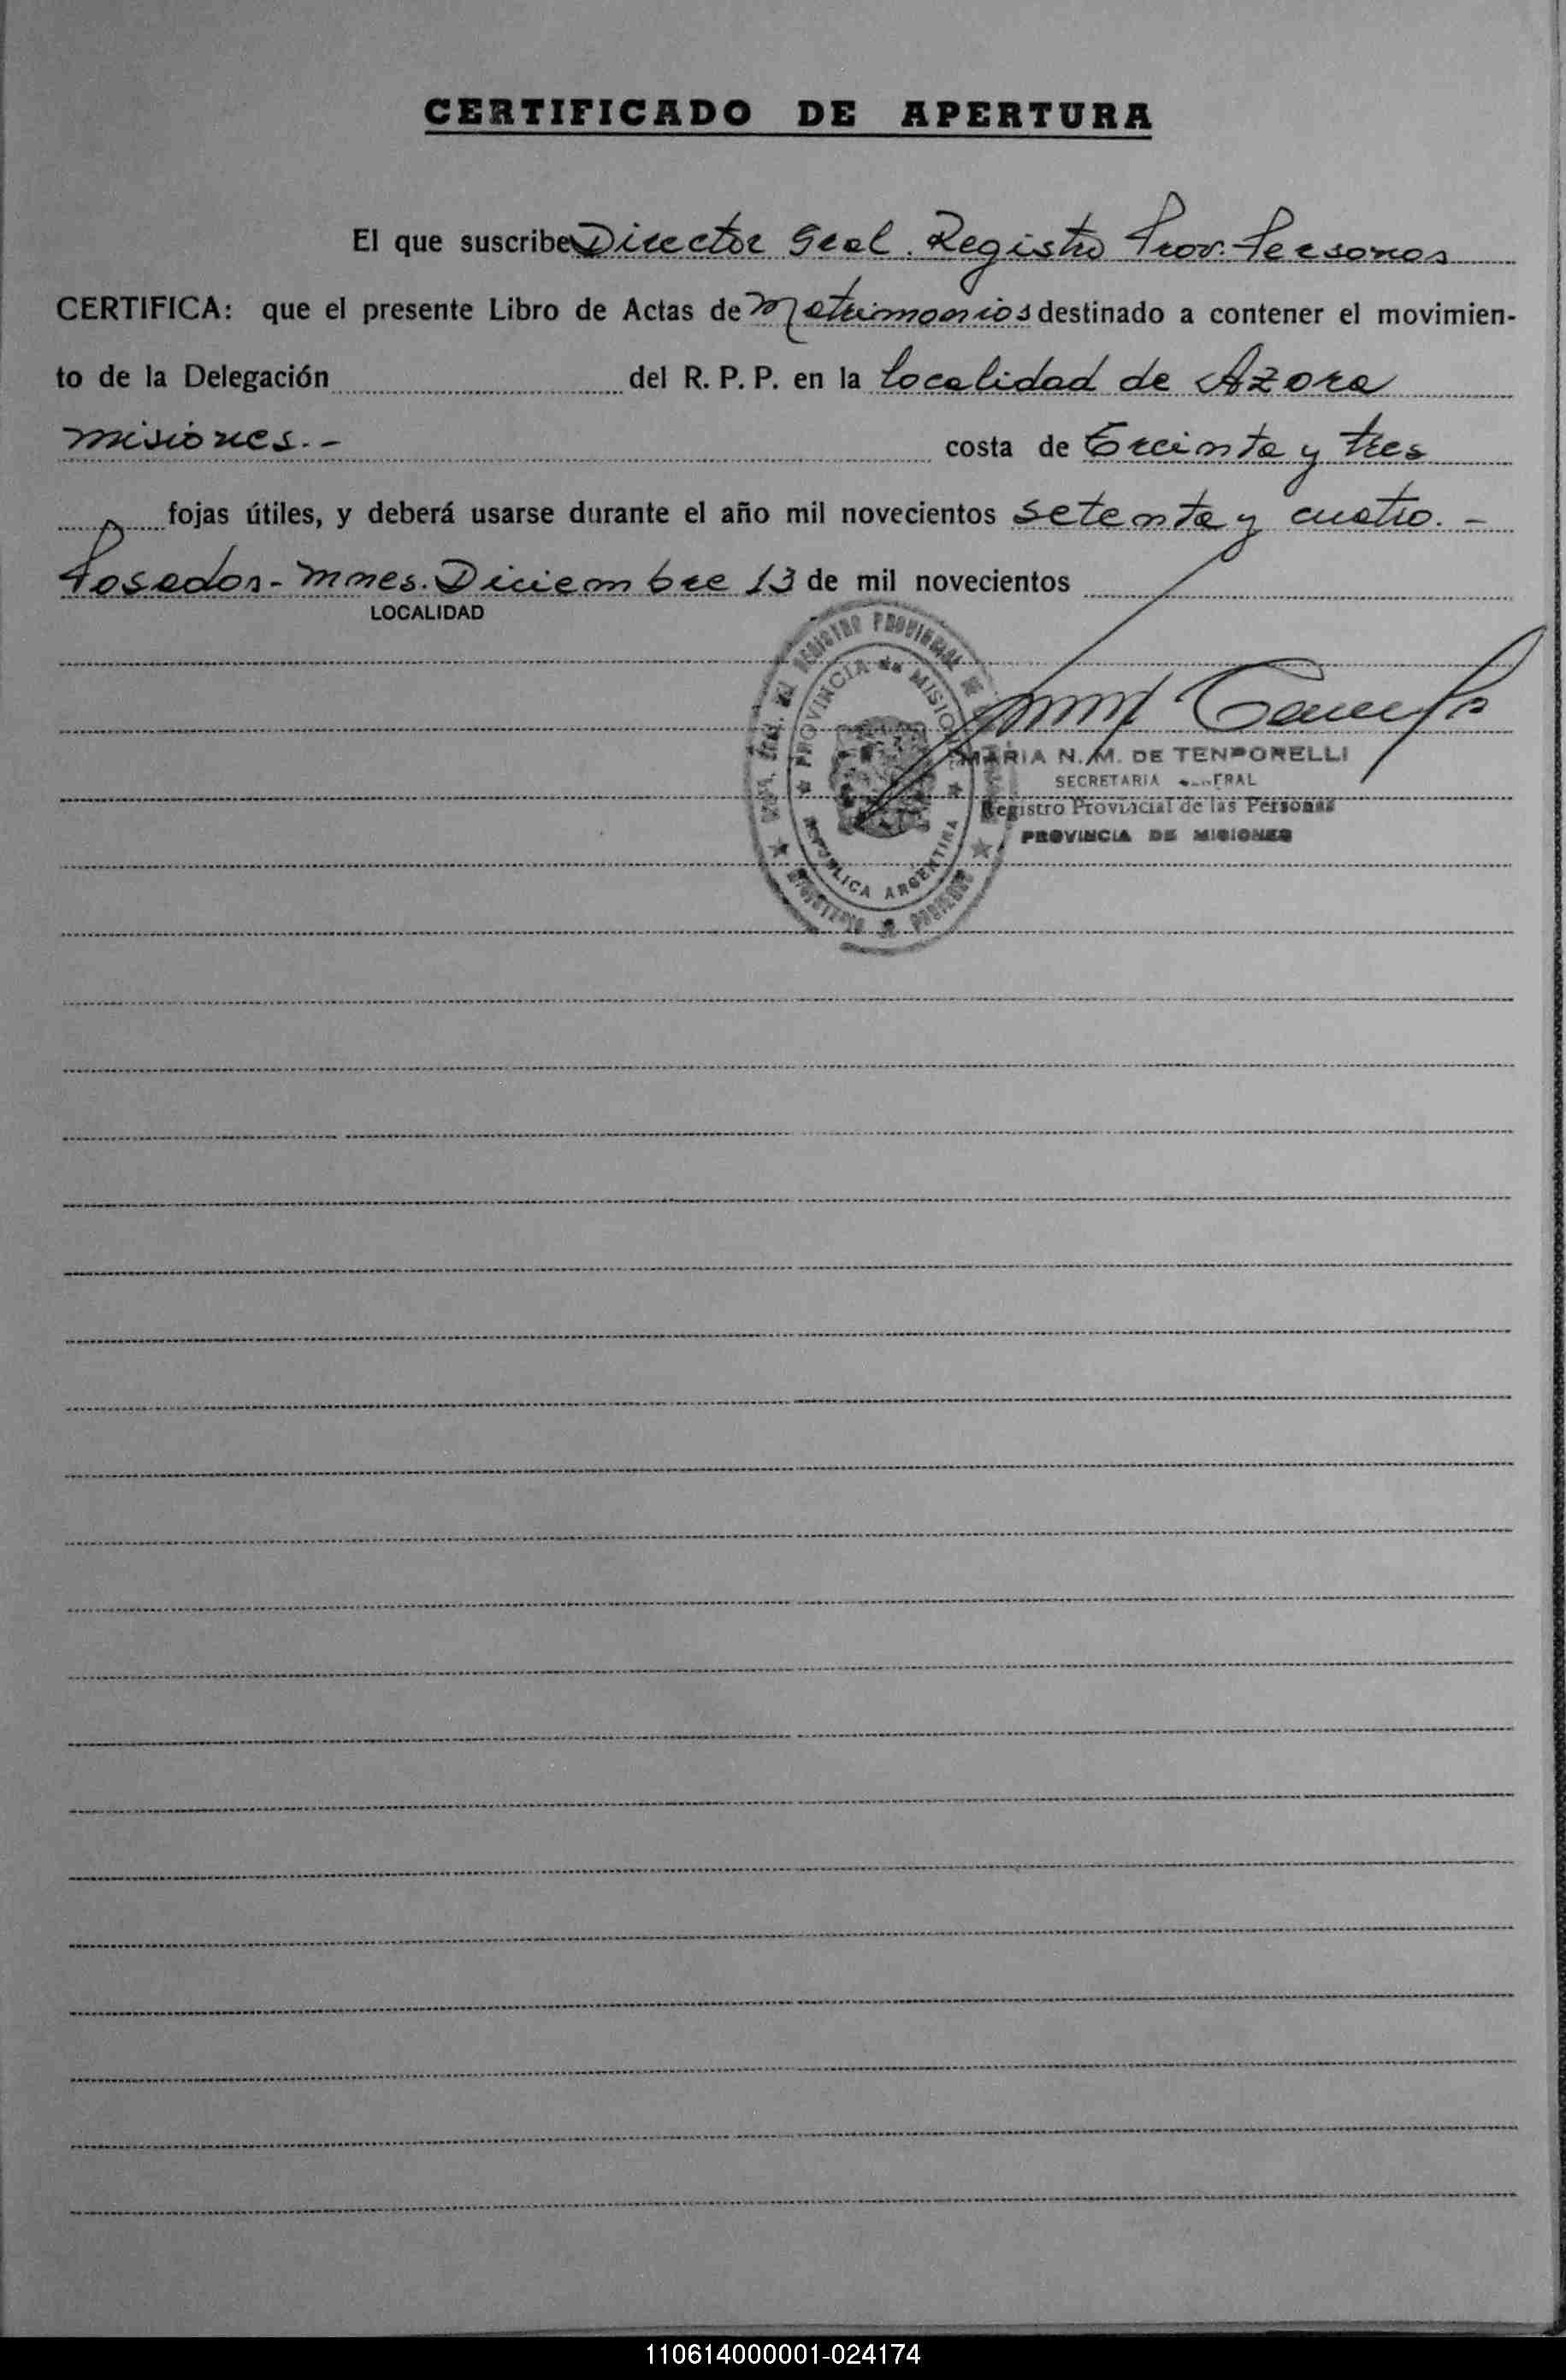 CERTIFICADO DE APERTURA
El que suscribe Director Gral. Registro Prov. Personas
CERTIFICA: que el presente Libro de Actas de Matrimonios destinado a contener el movimien-
to de la Delegación del R. P. P. en la localidad de Azara
misiones.- costa de Treinta y tres
fojas útiles, y deberá usarse durante el año mil novecientos setenta y cuatro.-
Posadas - Mnes. Diciembre 13 de mil novecientos
LOCALIDAD
REGISTRO PROVINCIAL DE
PROVINCIA de MISIONES
REPUBLICA ARGENTINA
MINISTERIO DE GOBIERNO
MARIA N. M. DE TEMPORELLI
SECRETARIA
Registro Provincial de las Personas
PROVINCIA DE MISIONES
110614000001-024174